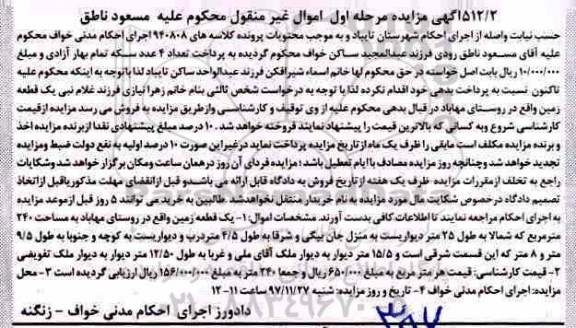 ۵۱۲/۲آگهی مزایده مرحله اول اموال غیر منقول محکوم علیه مسعود ناطق
حسب نیابت واصله از اجرای احکام شهرستان تایباد و به موجب محتویات پرونده کلاسه های ۹۴۰۸۰۸ اجرای احکام مدنی خواف محکوم
علیه آقای مسعود ناطق رودی فرزند عبدالمجید ساکن خواف محکوم گردیده به پرداخت تعداد ۴ عدد سکه تمام بهار آزادی و مبلغ
۱۰/۰۰۰/۰۰۰ ریال بابت اصل خواسته در حق محکوم لها خانم اسماء شیرافکن فرزند عبدالواحد ساکن تایباد لذا باتوجه به اینکه محکوم علیه
تاکنون نسبت به پرداخت بدهی خود اقدام نکرده لذا با توجه به درخواست شخص ثالثی بنام خانم زهرا نیازی فرزند غلام نبی یک قطعه
زمین واقع در روستای مهاباد در قبال بدهی محکوم علیه از وی توقیف و کارشناسی واز طریق مزایده به فروش می رسد مزایده ازقیمت
کارشناسی شروع وبه کسانی که بالاترین قیمت را پیشنهاد نمایند فروخته خواهد شد . ۱۰ درصد مبلغ پیشنهادی نقدا ازبرنده مزایده اخذ
و برنده مزایده مکلف است مابقی را ظرف یک ماه از تاریخ مزایده پرداخت نماید درغیر این صورت ۱۰ درصد اولیه به نفع دولت ضبط ومزایده
تجدید خواهد شد وچنانچه روز مزایده مصادف با ایام تعطیل باشد ؛ مزایده فردای آن روز در همان ساعت ومکان برگزار خواهد شد وشکایات
راجع به تخلف ازمقررات مزایده ظرف یک هفته از تاریخ فروش به دادگاه قابل ارائه می باشدو قبل ازانقضای مهلت مذکور یاقبل ازاتخاذ
تصمیم دادگاه درخصوص شکایت مال مورد مزایده به نام خریدار منتقل نخواهدشد .طالبین به خرید می توانند ۵ روز قبل ازموعد مزایده
به اجرای احکام مراجعه نمایند تا اطلاعات کافی بدست آورند. مشخصات اموال: ۱- یک قطعه زمین واقع در روستای مهاباد به مساحت ۲۴۰
مترمربع که شمالا به طول ۲۵ متر دیواریست به منزل جان بیگی و شرقا به طول ۴/۵ متردرب و دیواریست به کوچه و جنوبا به طول ۹/۵
متر و ۸ متر که این قسمت شرقی است و ۱۵/۵ متر دیوار به دیوار ملک آقای ملی و غربا به طول ۱۲/۵۰ متر دیوار به دیوار ملک تفویضی
۲- قیمت کارشناسی: قیمت هر متر مربع به مبلغ ۶۵۰/۰۰۰ ریال و جمعا ۲۴۰ متر به مبلغ ۱۵۶/۰۰۰/۰۰۰ ریال ارزیابی گردیده است ۳- محل
مزایده: اجرای احکام مدنی خواف ۴- تاریخ و روز مزایده: شنبه ۹۷/۱۱/۲۷ ساعت ۱۱- ۱۲
دادورز اجرای احکام مدنی خواف - زنگنه